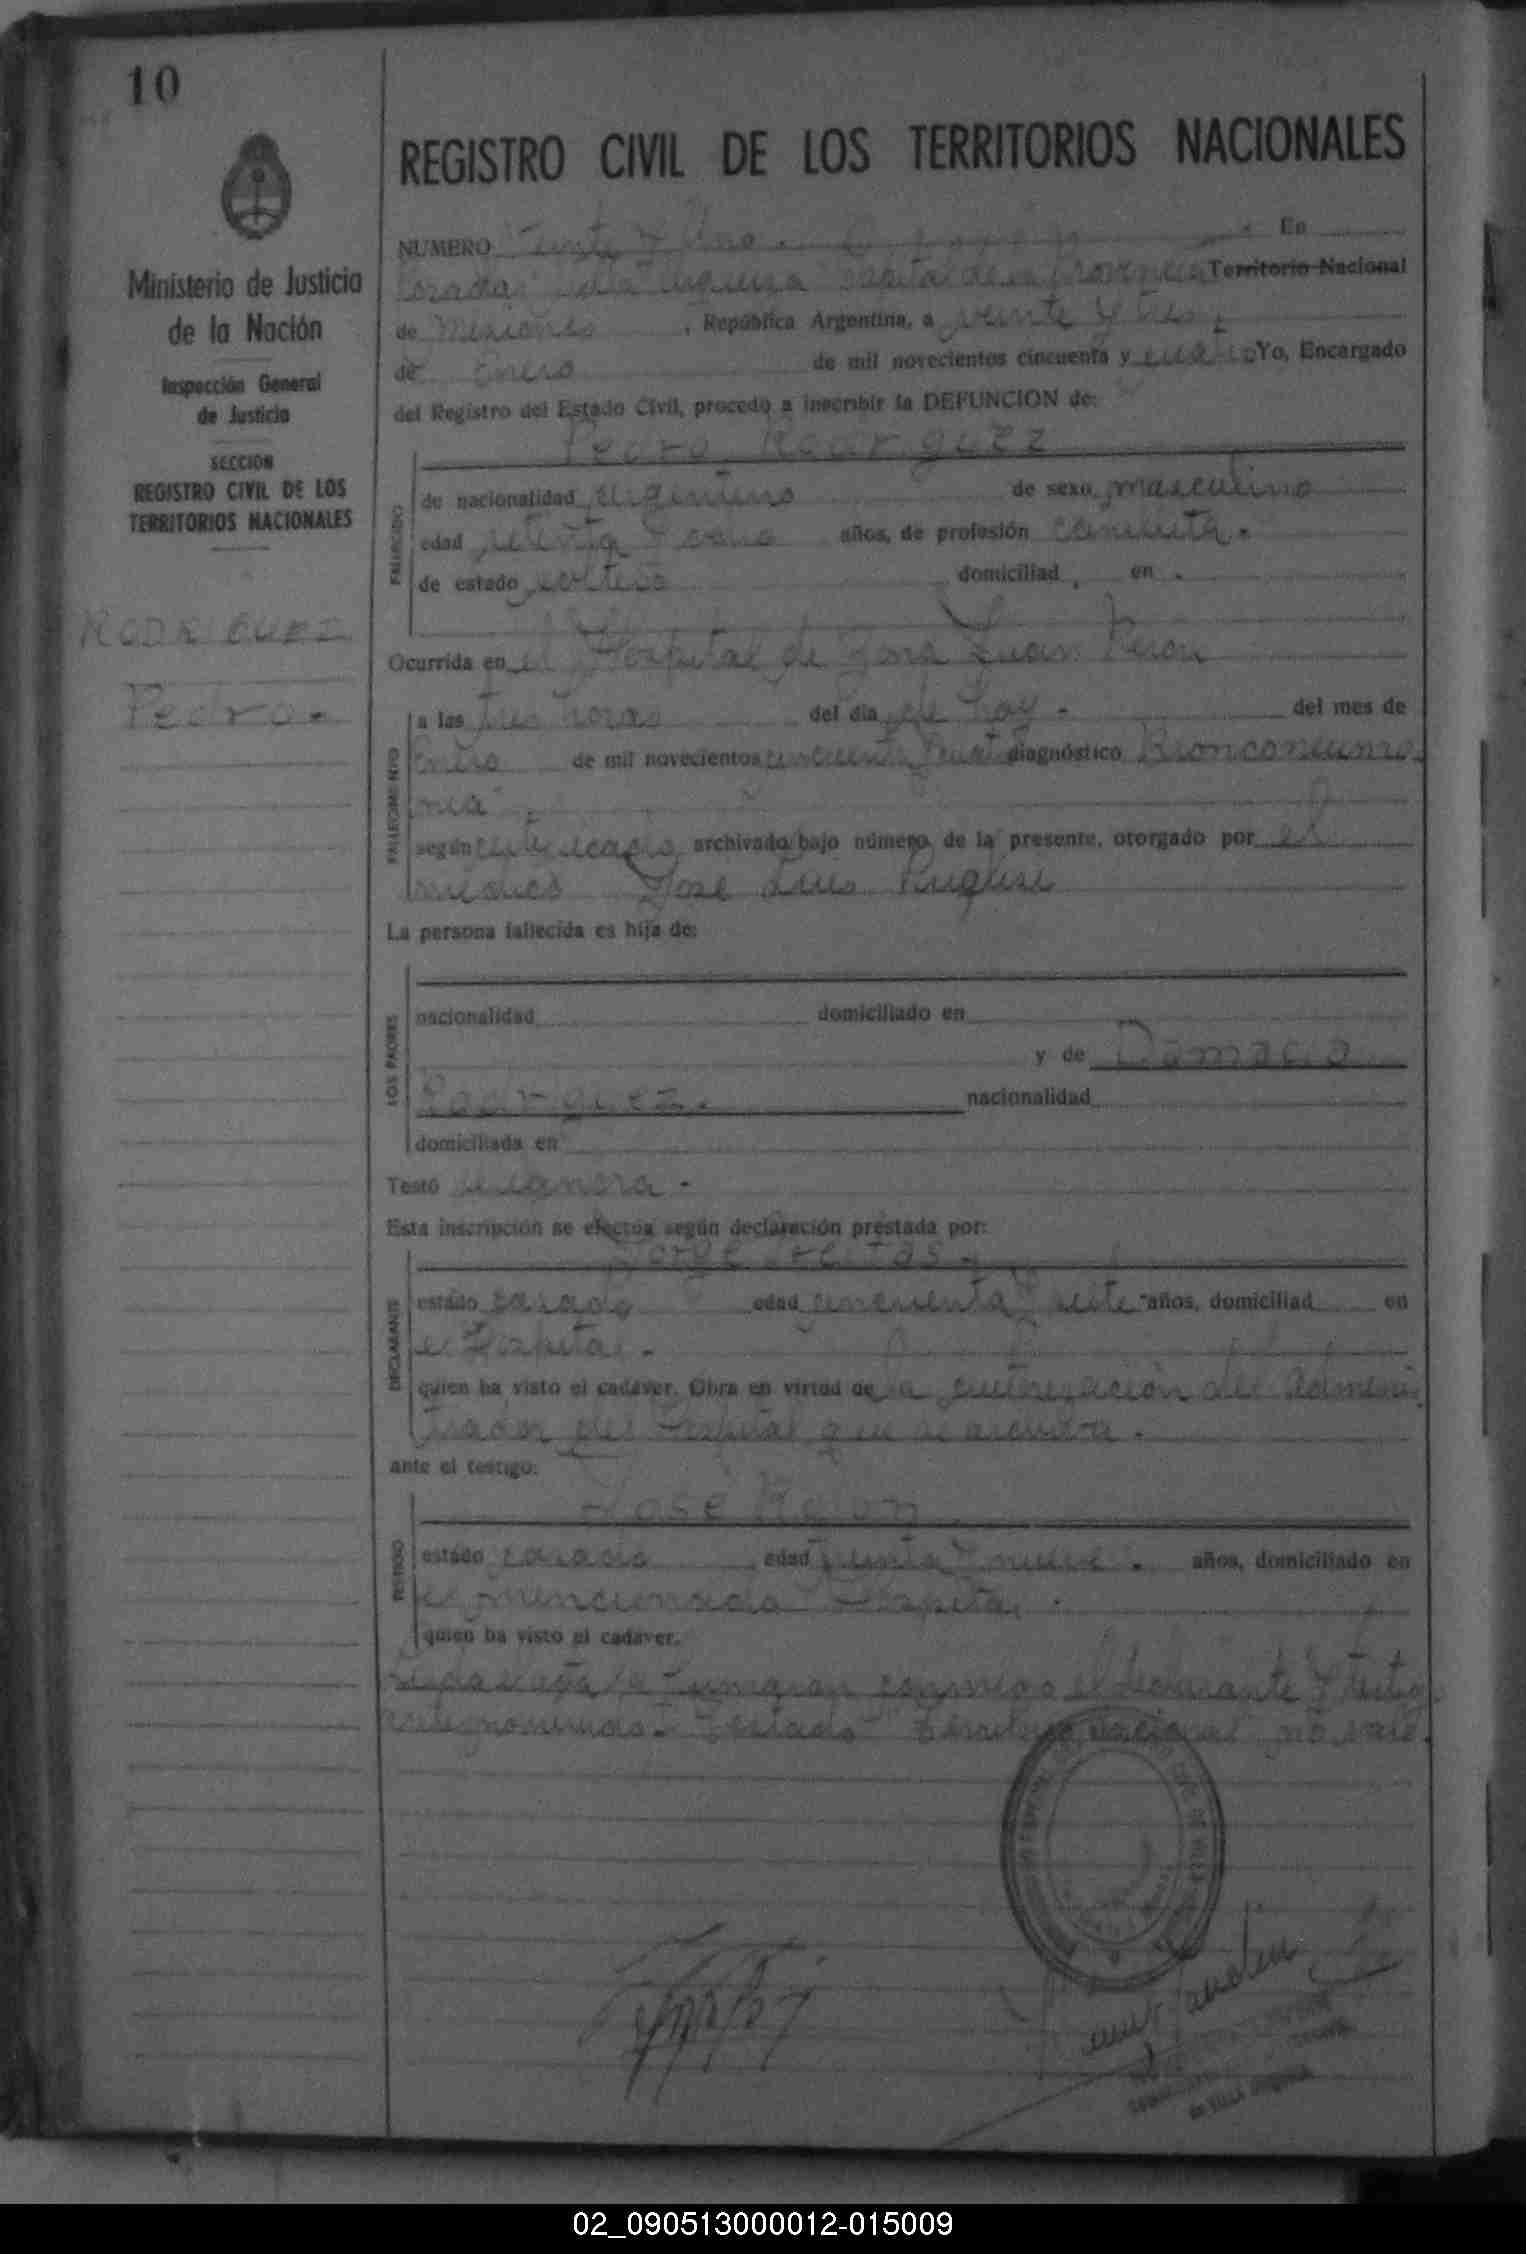 10
Ministerio de Justicia
de la Nación
Inspección General
de Justicia
SECCION
REGISTRO CIVIL DE LOS
TERRITORIOS NACIONALES
RODRIGUEZ
Pedro.-
REGISTRO CIVIL DE LOS TERRITORIOS NACIONALES
NUMERO Veinte y Uno. En
Posadas Villa Urquiza Capital de la Provincia Territorio Nacional
de Misiones, República Argentina, a veinte y tres,
de Enero de mil novecientos cincuenta y cuatro Yo, Encargado
del Registro del Estado Civil, procedo a inscribir la DEFUNCION de:
Pedro Rodriguez
FALLECIDO
de nacionalidad argentino de sexo masculino
edad setenta y años, de profesión
de estado soltero domiciliad en
Ocurrida en el Hospital de Zona Juan Peron
FALLECIMIENTO
a las tres horas del día de hoy. del mes de
Enero de mil novecientos cincuenta y cuatro diagnóstico Bronconeumo-
nia
según certificado archivado bajo número de la presente, otorgado por el
médico José Luis Pugliese
La persona fallecida es hija de:
LOS PADRES
nacionalidad domiciliado en
y de Damacia
Rodriguez. nacionalidad
domiciliada en
Testó se ignora.
Esta inscripción se efectúa según declaración prestada por:
Jorge Freitas
DECLARANTE
estado casado edad cincuenta y siete años, domiciliad en
el Hospital.
quien ha visto el cadáver. Obra en virtud de la autorización del Adminis-
trador del Hospital que se archiva.
ante el testigo:
José
TESTIGO
estado casado edad treinta y nueve. años, domiciliado en
el mencionado Hospital.
quien ha visto el cadaver.
Leida el acta la firmaron conmigo el declarante y testigo
antes nombrado. Testado Territorio Nacional no vale.
de VILLA URQUIZA
02_090513000012-015009